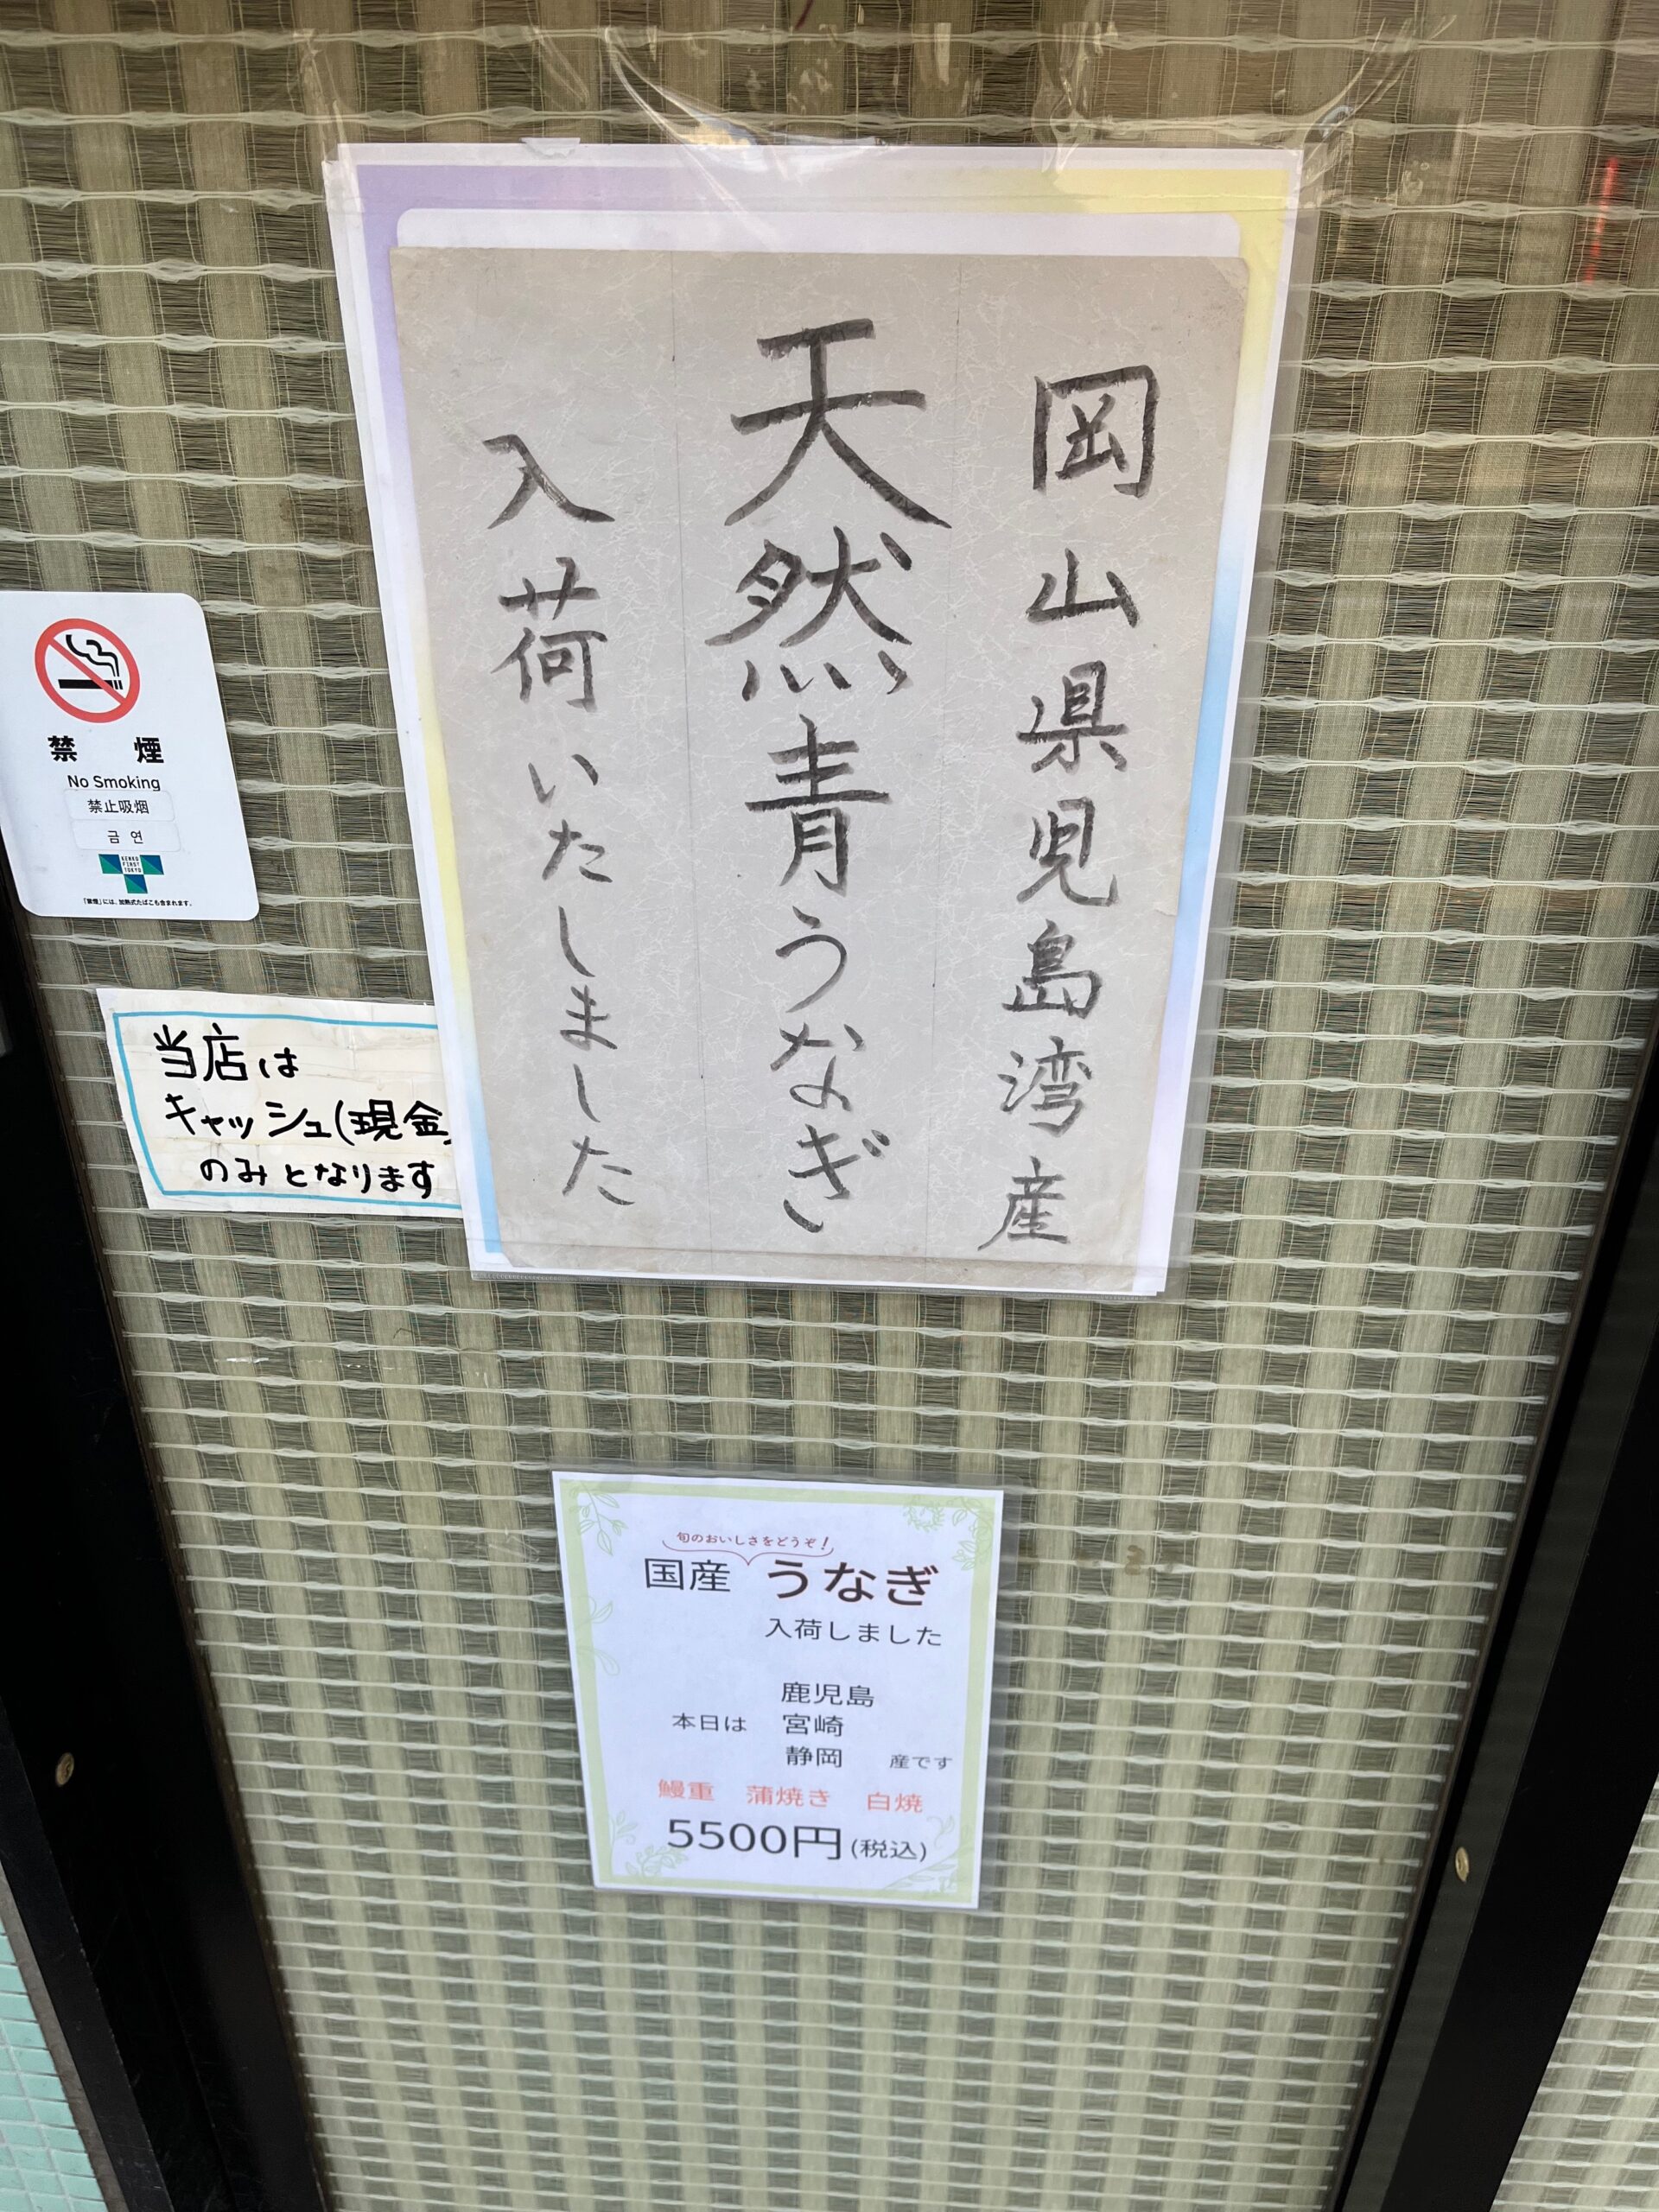 岡山県児島湾産
天然青うなぎ
入荷いたしました
禁煙
No Smoking
禁止吸烟
금연
KENKO
FIRST
TOKYO
「禁煙」には、加熱式たばこも含まれます。
当店は
キャッシュ(現金)
のみとなります
旬のおいしさをどうぞ!
国産 うなぎ
入荷しました
鹿児島
本日は 宮崎
静岡 産です
鰻重 蒲焼き 白焼
5500円(税込)